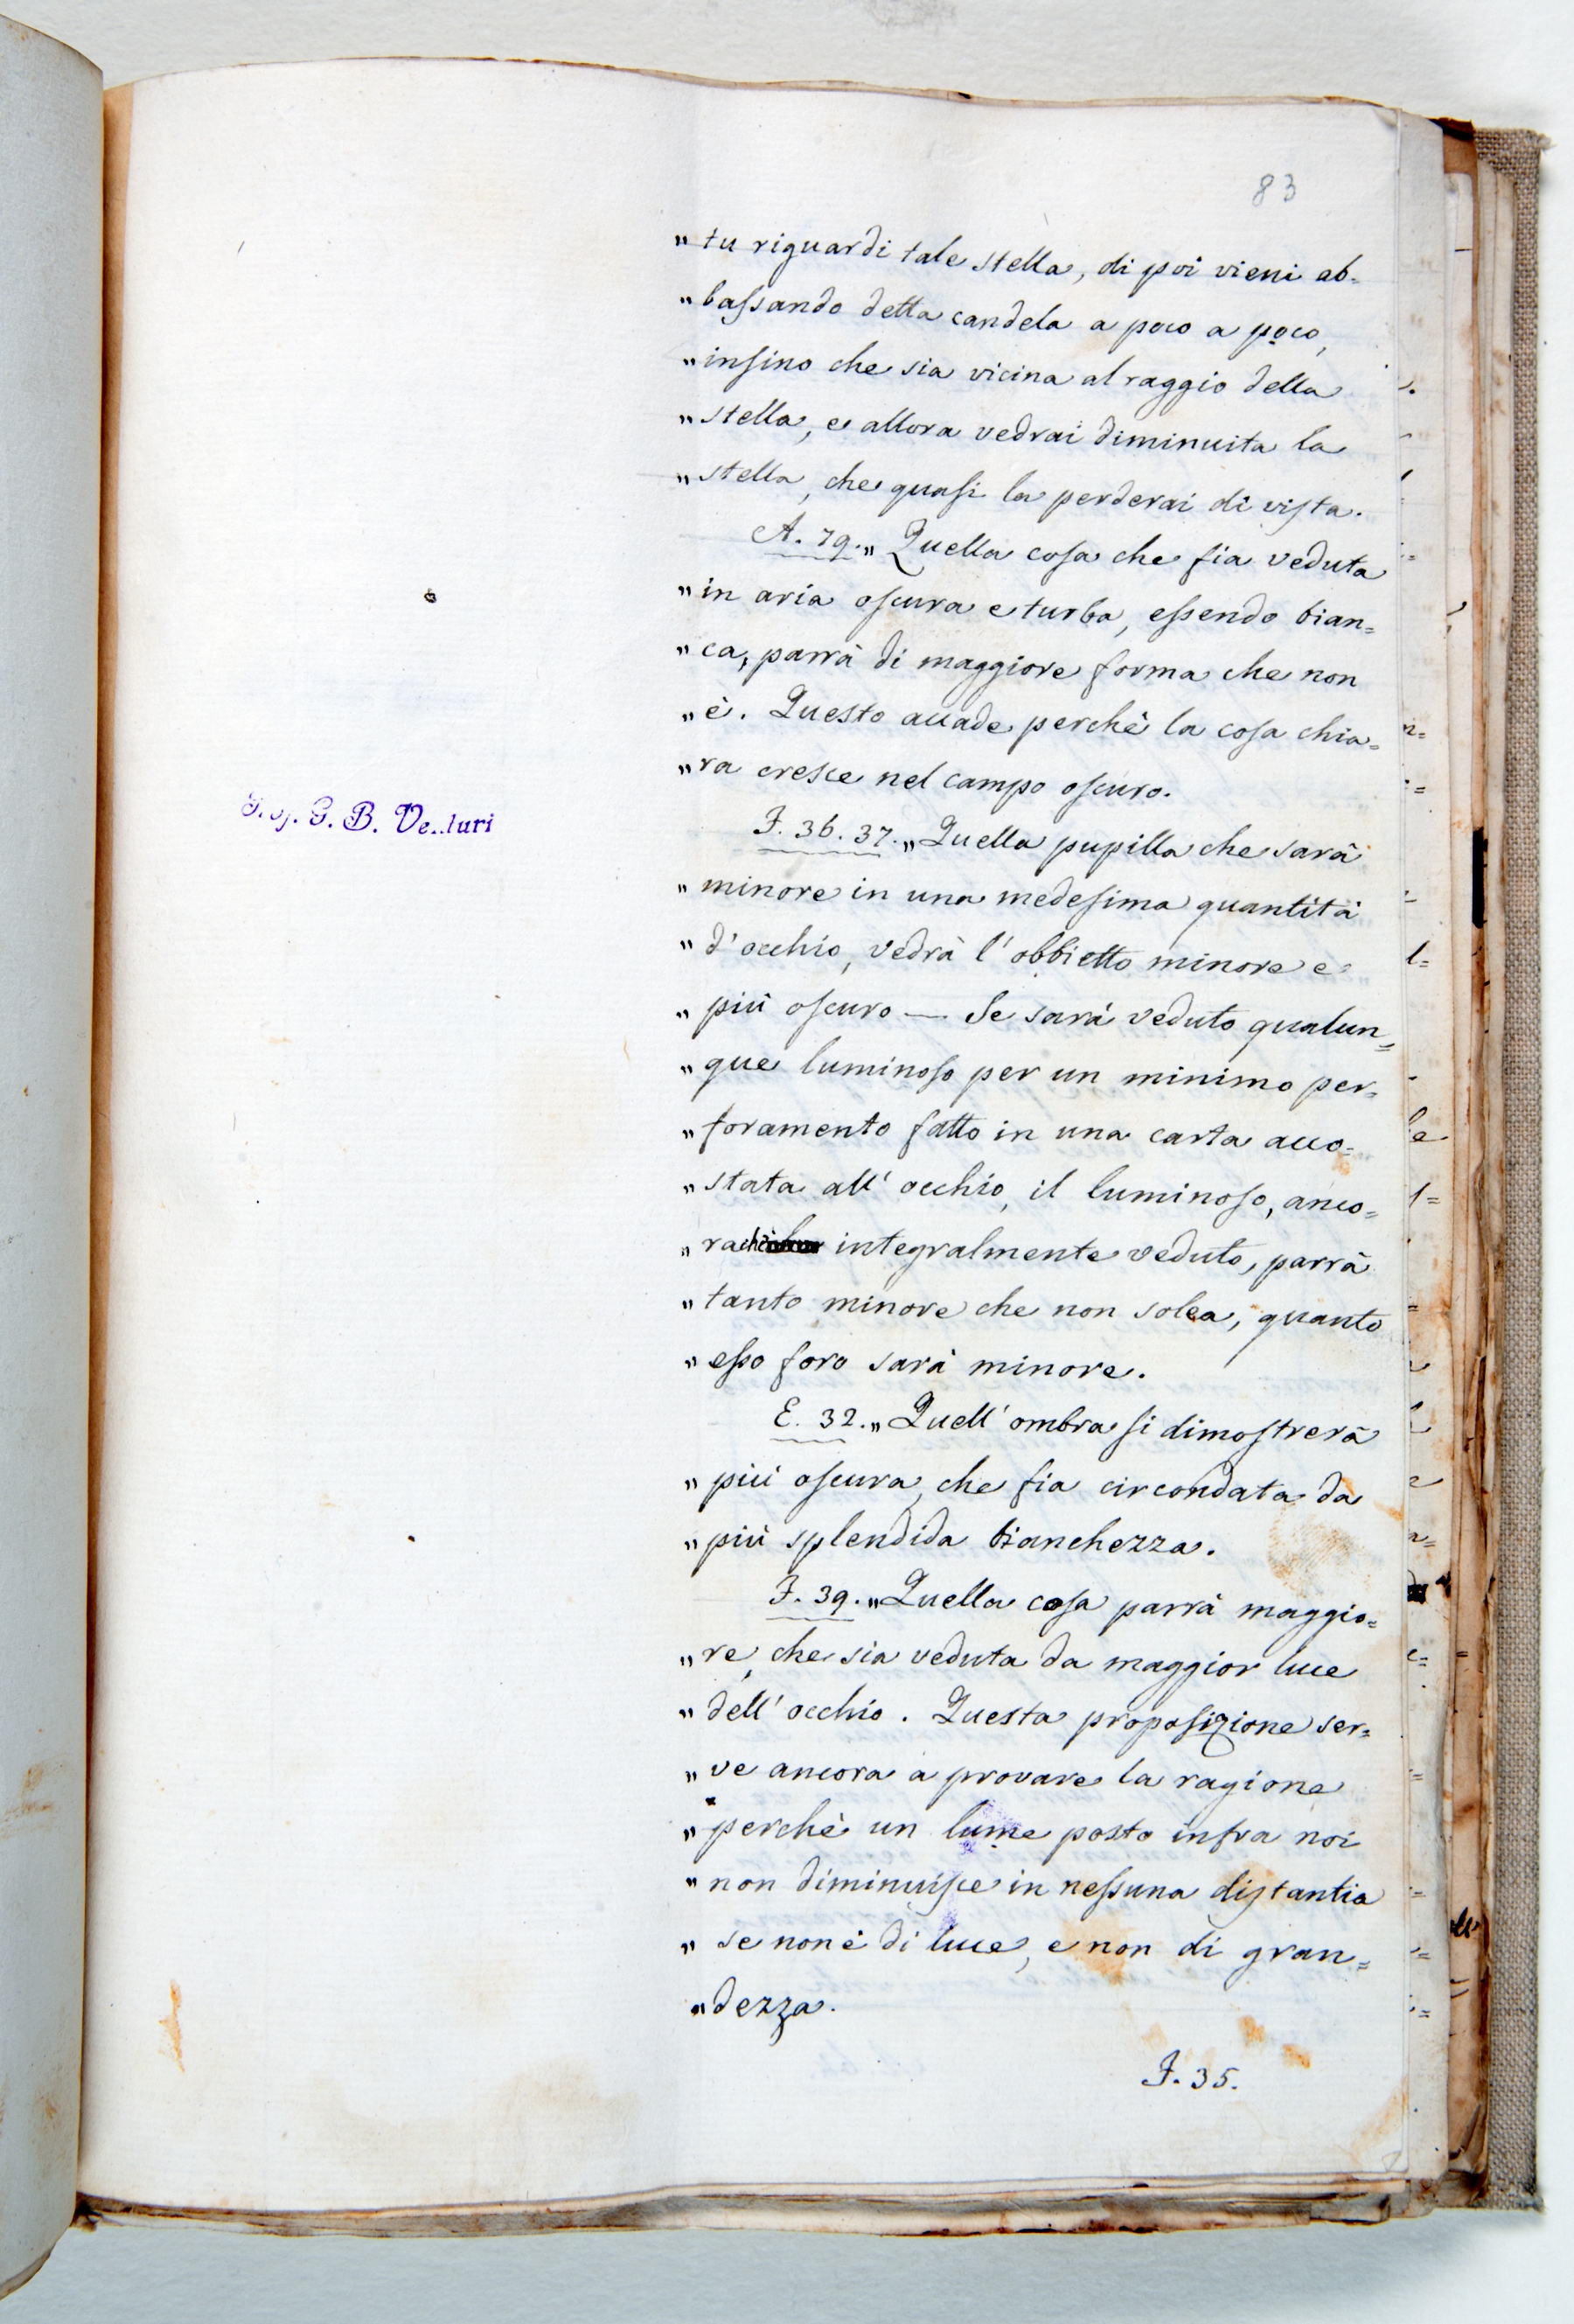 83
„ tu riguardi tale stella, di poi vieni ab-
„ bassando detta candela a poco a poco,
„ insino che sia vicina al raggio della
„ stella, e allora vedrai diminuita la
„ stella, che quasi la perderai di vista.
A. 79. „ Quella cosa che fia veduta
„ in aria oscura e turba, essendo bian=
„ ca, parrà di maggiore forma che non
„ è. Questo accade perchè la cosa chia=
„ ra cresce nel campo oscuro.
G. B. Venturi
F. 36. 37. „ Quella pupilla che sarà
„ minore in una medesima quantità
„ d'occhio, vedrà l'obbietto minore e
„ più oscuro — Se sarà veduto qualun=
„ que luminoso per un minimo per=
„ foramento fatto in una carta acco=
„ stata all'occhio, il luminoso, anco=
„ rachè integralmente veduto, parrà
„ tanto minore che non solea, quanto
„ esso foro sarà minore.
E. 32. „ Quell'ombra si dimostrerà
„ più oscura, che fia circondata da
„ più splendida bianchezza.
F. 39. „ Quella cosa parrà maggio=
„ re, che sia veduta da maggior luce
„ dell'occhio. Questa proposizione ser=
„ ve ancora a provare la ragione
„ perchè un lume posto infra noi
„ non diminuisce in nessuna distantia
„ se non è di luce, e non di gran=
„ dezza.
F. 35.